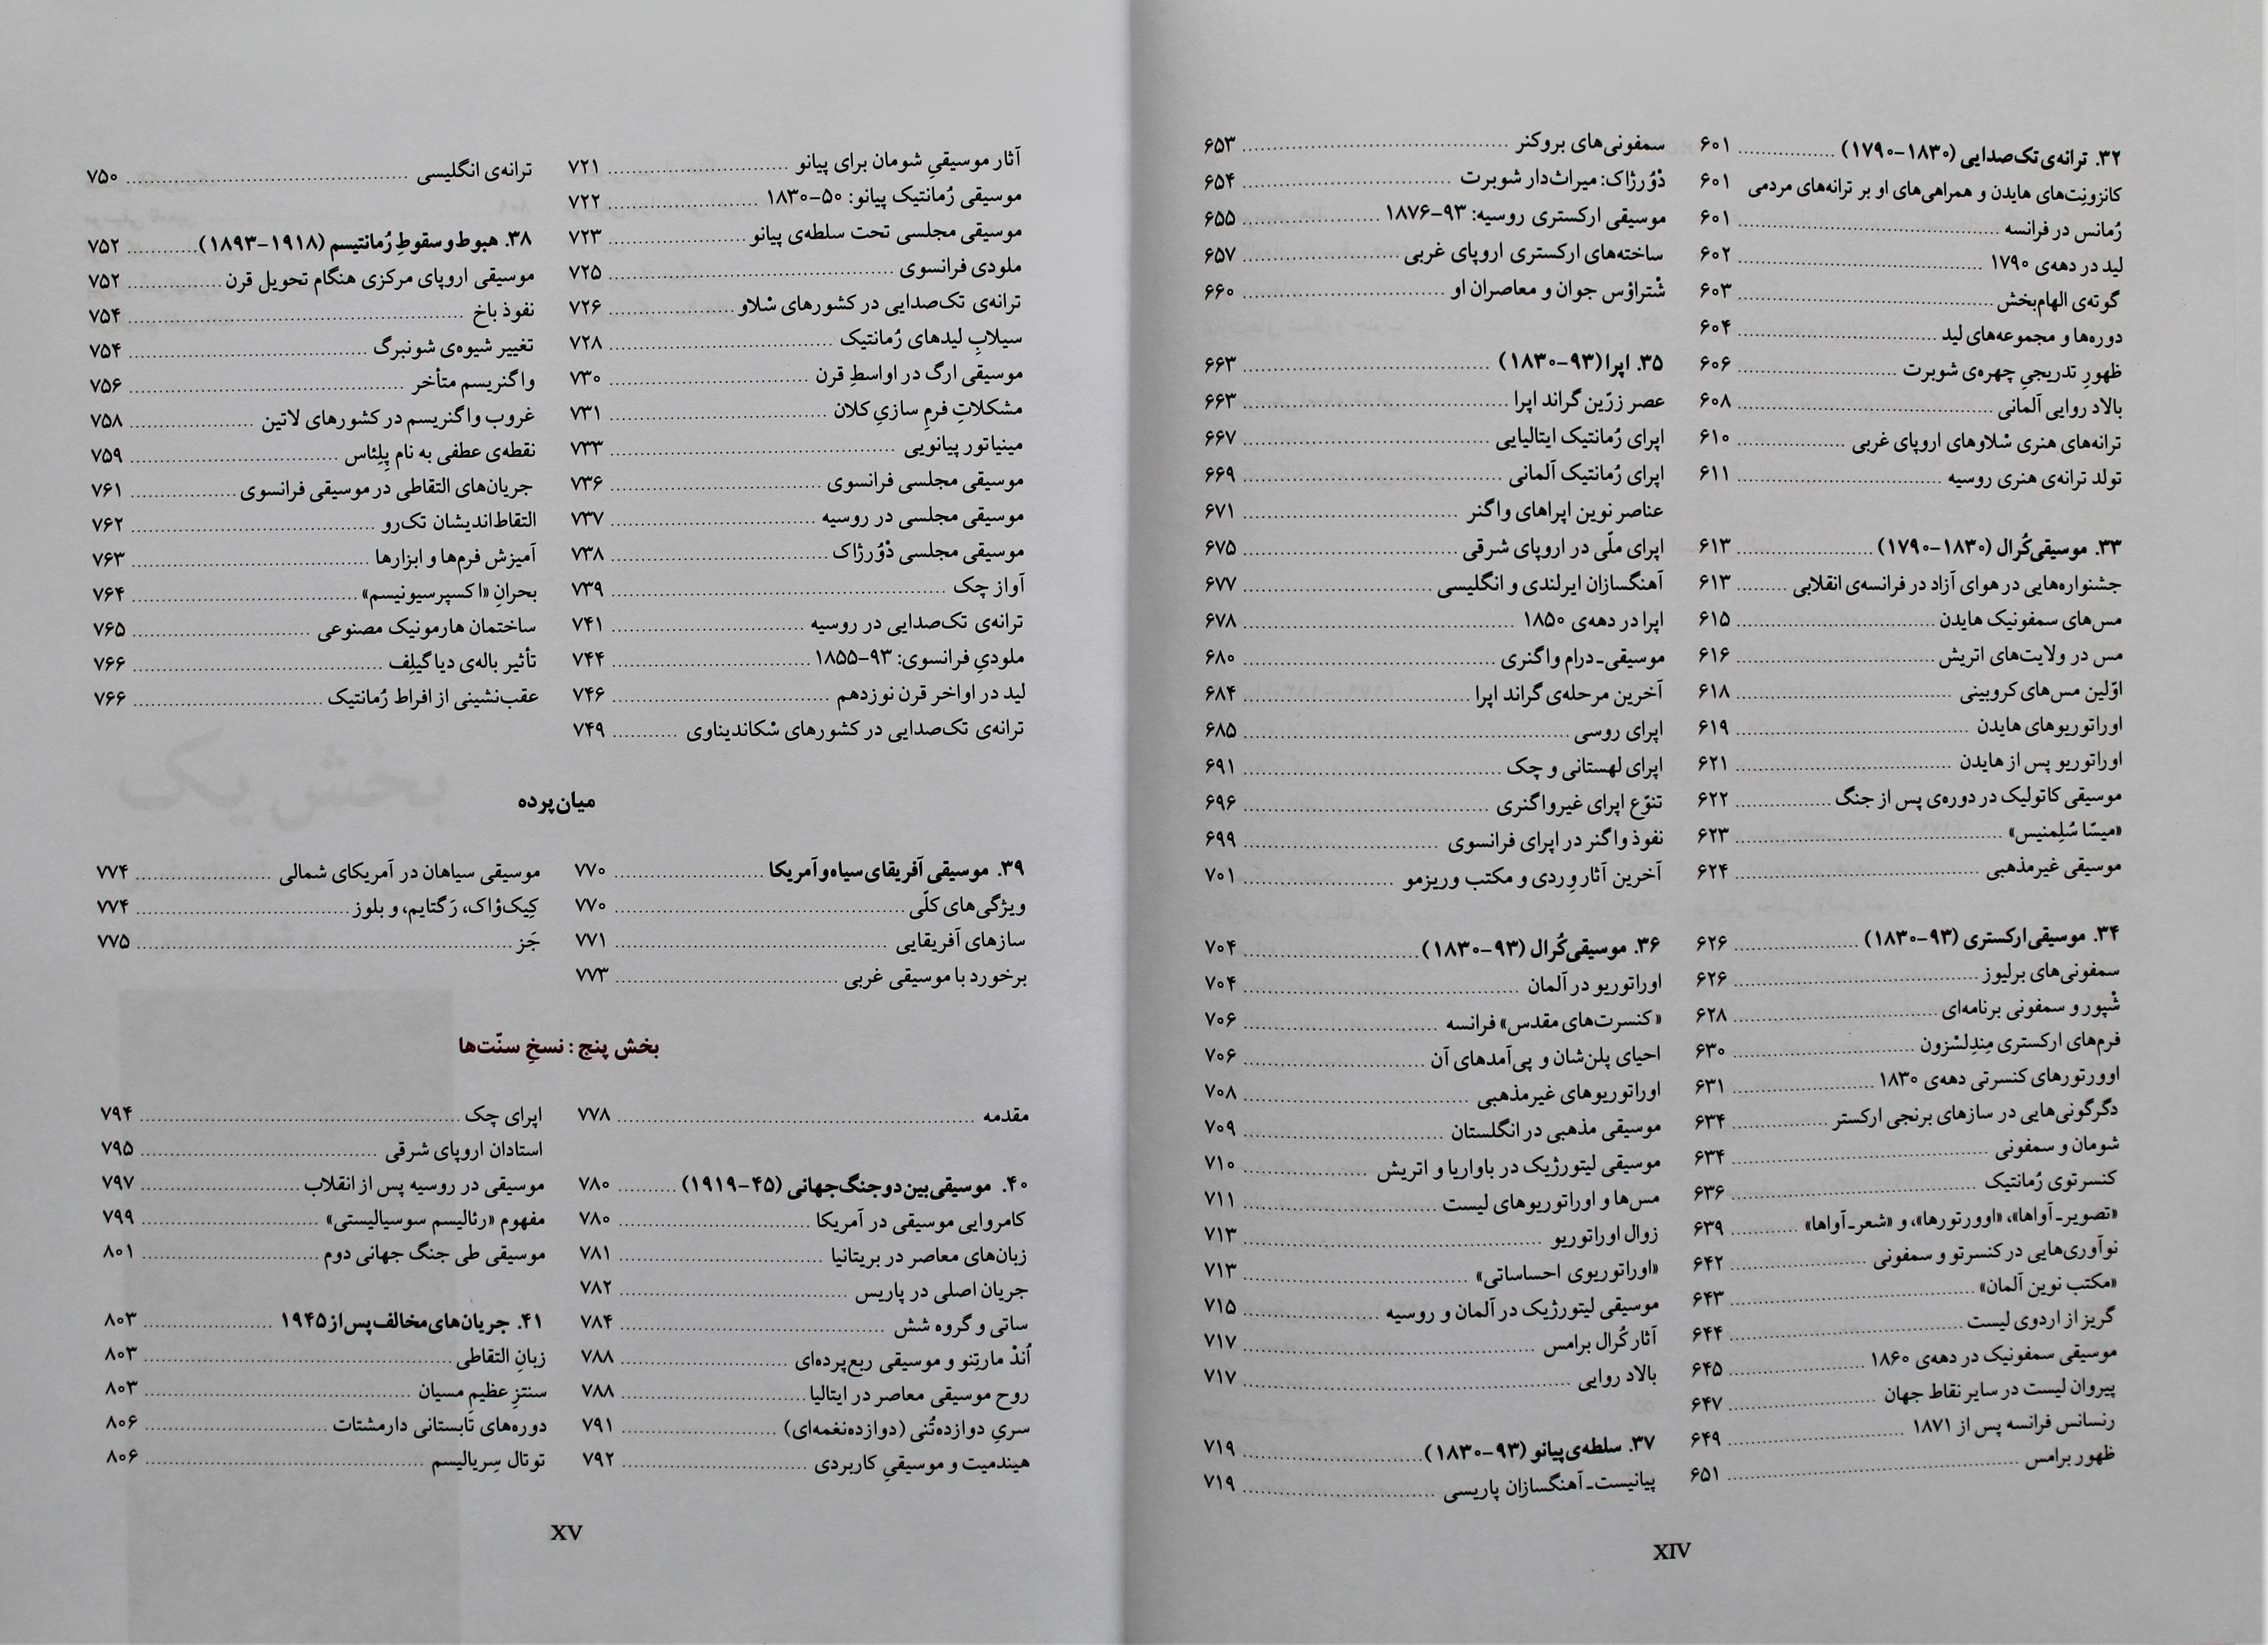 ۳۲. ترانه‌ی تک‌صدایی (۱۸۳۰-۱۷۹۰) ........ ۶۰۱
کانزونِت‌های هایدن و همراهی‌های او بر ترانه‌های مردمی ۶۰۱
رُمانس در فرانسه ........ ۶۰۱
لید در دهه‌ی ۱۷۹۰ ........ ۶۰۲
گوته‌ی الهام‌بخش ........ ۶۰۳
دوره‌ها و مجموعه‌های لید ........ ۶۰۴
ظهورِ تدریجیِ چهره‌ی شوبرت ........ ۶۰۶
بالاد روایی آلمانی ........ ۶۰۸
ترانه‌های هنری سْلاوهای اروپای غربی ........ ۶۱۰
تولد ترانه‌ی هنری روسیه ........ ۶۱۱
۳۳. موسیقی کُرال (۱۸۳۰-۱۷۹۰) ........ ۶۱۳
جشنواره‌هایی در هوای آزاد در فرانسه‌ی انقلابی ........ ۶۱۳
مس‌های سمفونیک هایدن ........ ۶۱۵
مس در ولایت‌های اتریش ........ ۶۱۶
اوّلین مس‌های کروبینی ........ ۶۱۸
اوراتوریوهای هایدن ........ ۶۱۹
اوراتوریو پس از هایدن ........ ۶۲۱
موسیقی کاتولیک در دوره‌ی پس از جنگ ........ ۶۲۲
«میسّا سُلِمنیس» ........ ۶۲۳
موسیقی غیرمذهبی ........ ۶۲۴
۳۴. موسیقی ارکستری (۹۳-۱۸۳۰) ........ ۶۲۶
سمفونی‌های برلیوز ........ ۶۲۶
شْپور و سمفونی برنامه‌ای ........ ۶۲۸
فرم‌های ارکستری مِندِلسْزون ........ ۶۳۰
اوورتورهای کنسرتی دهه‌ی ۱۸۳۰ ........ ۶۳۱
دگرگونی‌هایی در سازهای برنجی ارکستر ........ ۶۳۴
شومان و سمفونی ........ ۶۳۴
کنسرتوی رُمانتیک ........ ۶۳۶
«تصویر-آواها»، «اوورتورها»، و «شعر-آواها» ........ ۶۳۹
نوآوری‌هایی در کنسرتو و سمفونی ........ ۶۴۲
«مکتب نوین آلمان» ........ ۶۴۳
گریز از اردوی لیست ........ ۶۴۴
موسیقی سمفونیک در دهه‌ی ۱۸۶۰ ........ ۶۴۵
پیروان لیست در سایر نقاط جهان ........ ۶۴۷
رنسانس فرانسه پس از ۱۸۷۱ ........ ۶۴۹
ظهور برامس ........ ۶۵۱
سمفونی‌های بروکنر ........ ۶۵۳
دْوُرژاک: میراث‌دار شوبرت ........ ۶۵۴
موسیقی ارکستری روسیه: ۹۳-۱۸۷۶ ........ ۶۵۵
ساخته‌های ارکستری اروپای غربی ........ ۶۵۷
شْتراؤس جوان و معاصران او ........ ۶۶۰
۳۵. اپرا (۹۳-۱۸۳۰) ........ ۶۶۳
عصر زرّین گراند اپرا ........ ۶۶۳
اپرای رُمانتیک ایتالیایی ........ ۶۶۷
اپرای رُمانتیک آلمانی ........ ۶۶۹
عناصر نوین اپراهای واگنر ........ ۶۷۱
اپرای ملّی در اروپای شرقی ........ ۶۷۵
آهنگسازان ایرلندی و انگلیسی ........ ۶۷۷
اپرا در دهه‌ی ۱۸۵۰ ........ ۶۷۸
موسیقی-درام واگنری ........ ۶۸۰
آخرین مرحله‌ی گراند اپرا ........ ۶۸۴
اپرای روسی ........ ۶۸۵
اپرای لهستانی و چک ........ ۶۹۱
تنوّع اپرای غیرواگنری ........ ۶۹۶
نفوذ واگنر در اپرای فرانسوی ........ ۶۹۹
آخرین آثار وِردی و مکتب وریزمو ........ ۷۰۱
۳۶. موسیقی کُرال (۹۳-۱۸۳۰) ........ ۷۰۴
اوراتوریو در آلمان ........ ۷۰۴
«کنسرت‌های مقدس» فرانسه ........ ۷۰۶
احیای پلن‌شان و پی‌آمدهای آن ........ ۷۰۶
اوراتوریوهای غیرمذهبی ........ ۷۰۸
موسیقی مذهبی در انگلستان ........ ۷۰۹
موسیقی لیتورژیک در باواریا و اتریش ........ ۷۱۰
مس‌ها و اوراتوریوهای لیست ........ ۷۱۱
زوال اوراتوریو ........ ۷۱۳
«اوراتوریوی احساساتی» ........ ۷۱۳
موسیقی لیتورژیک در آلمان و روسیه ........ ۷۱۵
آثار کُرال برامس ........ ۷۱۷
بالاد روایی ........ ۷۱۷
۳۷. سلطه‌ی پیانو (۹۳-۱۸۳۰) ........ ۷۱۹
پیانیست-آهنگسازان پاریسی ........ ۷۱۹
XIV
آثار موسیقیِ شومان برای پیانو ........ ۷۲۱
موسیقی رُمانتیک پیانو: ۵۰-۱۸۳۰ ........ ۷۲۲
موسیقی مجلسی تحت سلطه‌ی پیانو ........ ۷۲۳
ملودی فرانسوی ........ ۷۲۵
ترانه‌ی تک‌صدایی در کشورهای سْلاو ........ ۷۲۶
سیلابِ لیدهای رُمانتیک ........ ۷۲۸
موسیقی ارگ در اواسطِ قرن ........ ۷۳۰
مشکلاتِ فرمِ سازیِ کلان ........ ۷۳۱
مینیاتور پیانویی ........ ۷۳۳
موسیقی مجلسی فرانسوی ........ ۷۳۶
موسیقی مجلسی در روسیه ........ ۷۳۷
موسیقی مجلسی دْوُرژاک ........ ۷۳۸
آواز چک ........ ۷۳۹
ترانه‌ی تک‌صدایی در روسیه ........ ۷۴۱
ملودیِ فرانسوی: ۹۳-۱۸۵۵ ........ ۷۴۴
لید در اواخر قرن نوزدهم ........ ۷۴۶
ترانه‌ی تک‌صدایی در کشورهای سْکاندیناوی ........ ۷۴۹
ترانه‌ی انگلیسی ........ ۷۵۰
۳۸. هبوط و سقوطِ رُمانتیسم (۱۹۱۸-۱۸۹۳) ........ ۷۵۲
موسیقی اروپای مرکزی هنگام تحویل قرن ........ ۷۵۲
نفوذ باخ ........ ۷۵۴
تغییر شیوه‌ی شونبرگ ........ ۷۵۴
واگنریسم متأخر ........ ۷۵۶
غروب واگنریسم در کشورهای لاتین ........ ۷۵۸
نقطه‌ی عطفی به نام پِلِئاس ........ ۷۵۹
جریان‌های التقاطی در موسیقی فرانسوی ........ ۷۶۱
التقاط‌اندیشان تک‌رو ........ ۷۶۲
آمیزش فرم‌ها و ابزارها ........ ۷۶۳
بحرانِ «اکسپرسیونیسم» ........ ۷۶۴
ساختمان هارمونیک مصنوعی ........ ۷۶۵
تأثیر باله‌ی دیاگیلِف ........ ۷۶۶
عقب‌نشینی از افراط رُمانتیک ........ ۷۶۶
میان‌پرده
۳۹. موسیقی آفریقای سیاه و آمریکا ........ ۷۷۰
ویژگی‌های کلّی ........ ۷۷۰
سازهای آفریقایی ........ ۷۷۱
برخورد با موسیقی غربی ........ ۷۷۳
موسیقی سیاهان در آمریکای شمالی ........ ۷۷۴
کِیک‌وْاک، رَگتایم، و بلوز ........ ۷۷۴
جَز ........ ۷۷۵
بخش پنج : نسخِ سنّت‌ها
مقدمه ........ ۷۷۸
۴۰. موسیقی بین دو جنگ جهانی (۴۵-۱۹۱۹) ........ ۷۸۰
کامروایی موسیقی در آمریکا ........ ۷۸۰
زبان‌های معاصر در بریتانیا ........ ۷۸۱
جریان اصلی در پاریس ........ ۷۸۲
ساتی و گروه شش ........ ۷۸۴
اُندْ مارتِنو و موسیقی ربع‌پرده‌ای ........ ۷۸۸
روح موسیقی معاصر در ایتالیا ........ ۷۸۸
سریِ دوازده‌تُنی (دوازده‌نغمه‌ای) ........ ۷۹۱
هیندمیت و موسیقیِ کاربردی ........ ۷۹۲
اپرای چک ........ ۷۹۴
استادان اروپای شرقی ........ ۷۹۵
موسیقی در روسیه پس از انقلاب ........ ۷۹۷
مفهوم «رئالیسم سوسیالیستی» ........ ۷۹۹
موسیقی طی جنگ جهانی دوم ........ ۸۰۱
۴۱. جریان‌های مخالف پس از ۱۹۴۵ ........ ۸۰۳
زبانِ التقاطی ........ ۸۰۳
سنتزِ عظیمِ مسیان ........ ۸۰۳
دوره‌های تابستانی دارمشتات ........ ۸۰۶
توتال سِریالیسم ........ ۸۰۶
XV